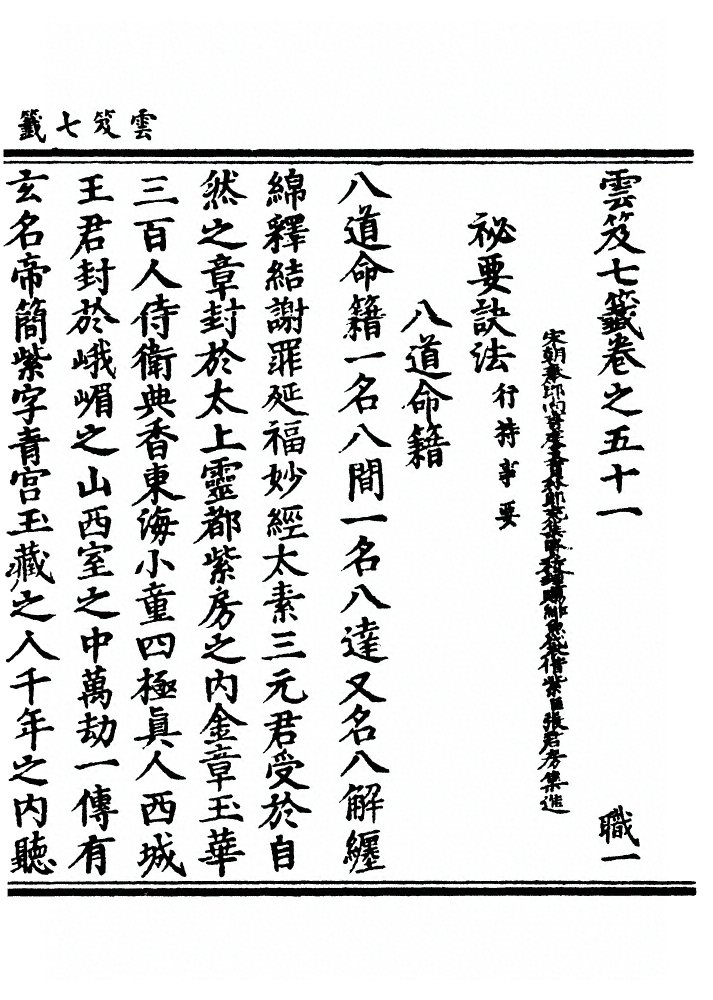 雲笈七籤
雲笈七籤卷之五十一 職一
祕要訣法 行持事要
八道命籍
八道命籍一名八間一名八達又名八解纏
綿釋結謝罪延福妙經太素三元君受於自
然之章封於太上靈都紫房之內金章玉華
三百人侍衛典香東海小童四極眞人西城
王君封於峨嵋之山西室之中萬劫一傳有
玄名帝簡紫字青宮玉藏之人千年之內聽